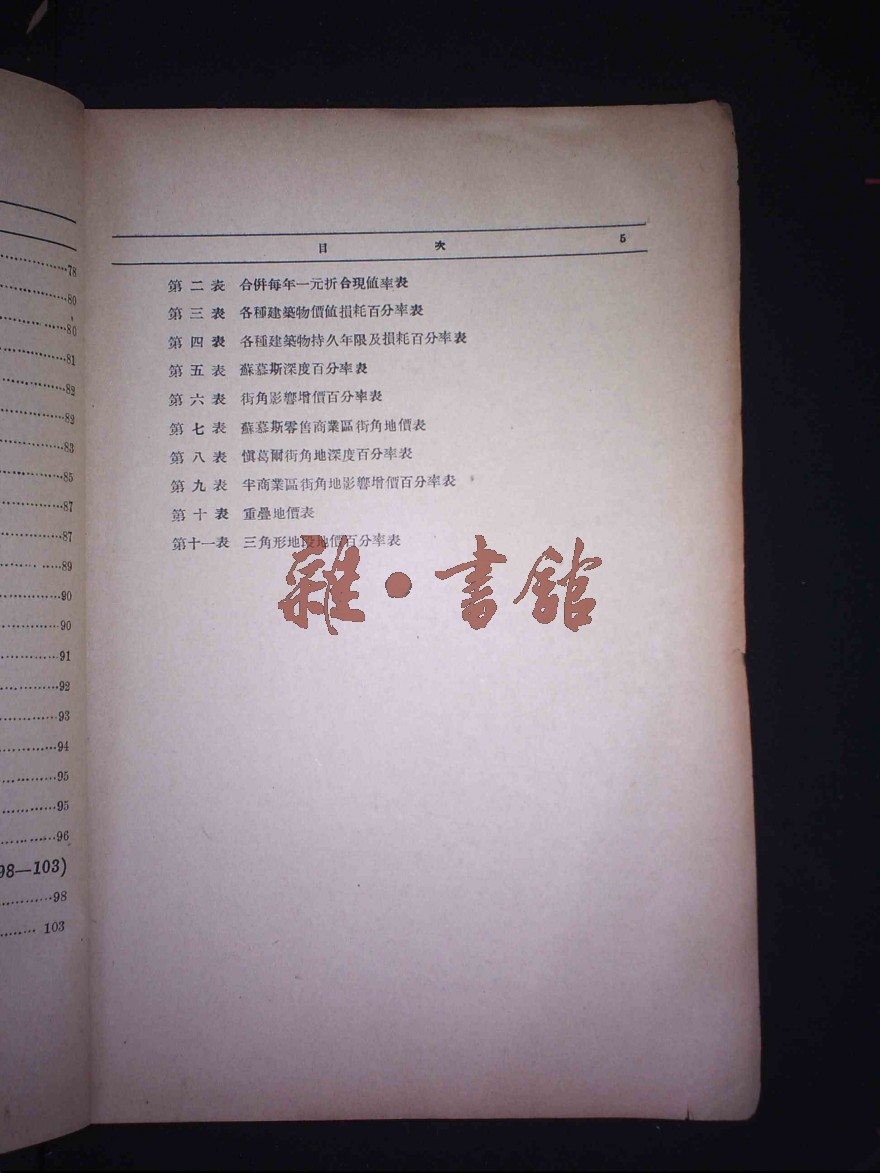 78
80
80
81
82
82
83
85
87
87
89
90
90
91
92
93
94
95
95
96
98—103)
98
103
目 次 5
第二表 合併每年一元折合現値率表
第三表 各種建築物價値損耗百分率表
第四表 各種建築物持久年限及損耗百分率表
第五表 蘇慕斯深度百分率表
第六表 街角影響增價百分率表
第七表 蘇慕斯零售商業區街角地價表
第八表 愼葛爾街角地深度百分率表
第九表 半商業區街角地影響增價百分率表
第十表 重疊地價表
第十一表 三角形地段地價百分率表
雜·書館